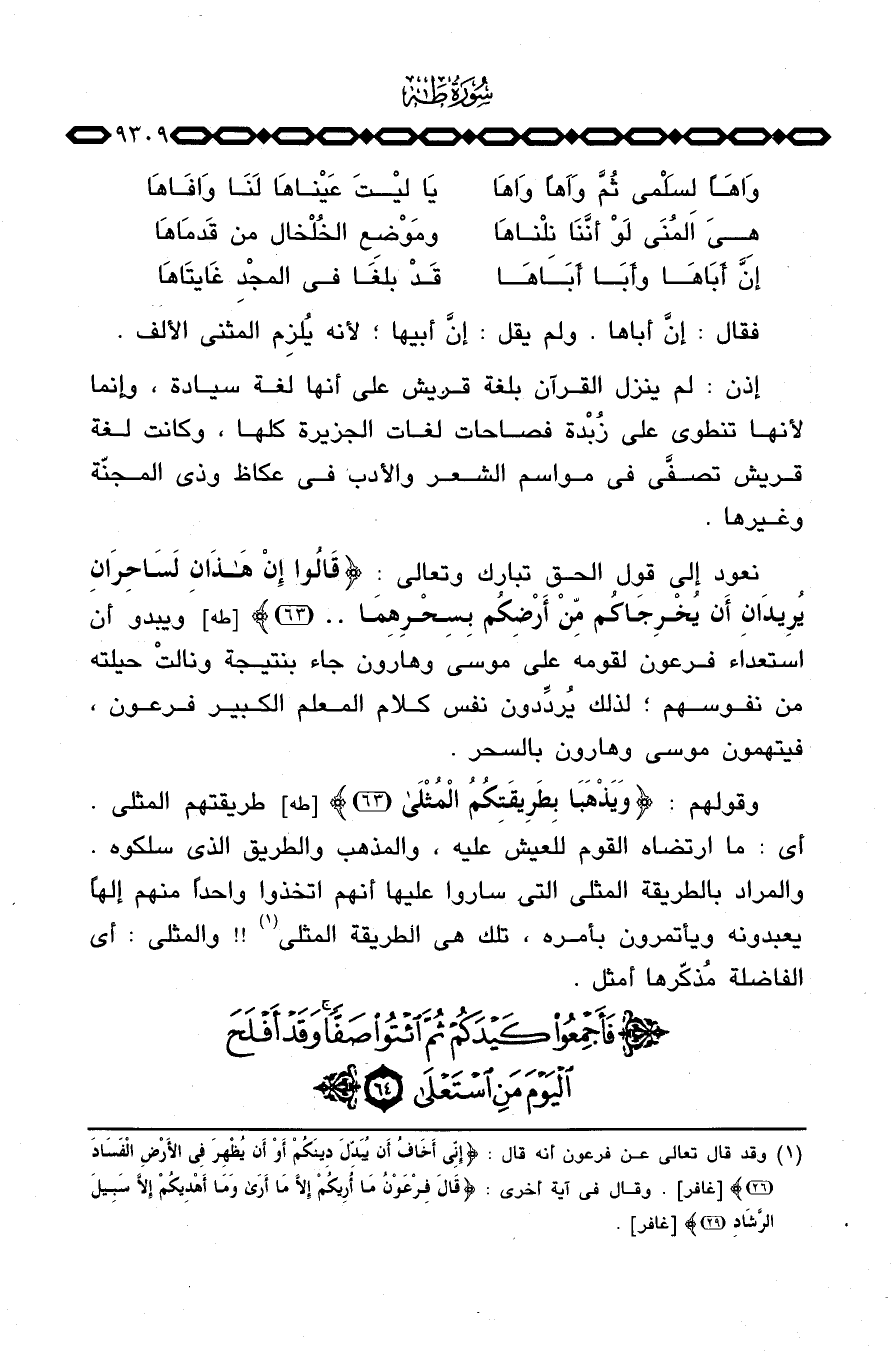 سُورَةُ طٰهٰ
٩٣٠٩
وَاهَــاً لسلْمى ثُمَّ وَاهاً وَاهَا يَا ليْــتَ عَيْنـاهَا لَنَـا وَافَـاهَا
هــىَ المُنَى لَوْ أنَّنَا نِلْنـاهَا ومَوْضـعِ الخُلْخال من قدمَاهَا
إنَّ أبَاهَــا وأبَــا أبَــاهَــا قَـدْ بلغَـا فـى المجْدِ غَايتَاهَا
فقال : إنَّ أباها . ولم يقل : إنَّ أبيها ؛ لأنه يُلزِم المثنى الألف .
إذن : لم ينزل القرآن بلغة قـريش على أنها لغـة سيـادة ، وإنما
لأنهـا تنطوى على زُبْدة فصـاحات لغـات الجزيرة كلهـا ، وكانت لـغة
قـريش تصـفَّى فى مـواسم الشـعـر والأدب فـى عكاظ وذى المـجنّة
وغـيرها .
نعود إلى قول الحـق تبارك وتعالى : ﴿ قَالُوا إِنْ هَـٰـذَانِ لَسَاحِرَانِ
يُرِيدَانِ أَن يُخْـرِجَاكُم مِّنْ أَرْضِكُم بِسـحْـرِهِمَـا .. (٦٣) ﴾ [طه] ويبدو أن
استعداء فـرعون لقومه على موسى وهارون جاء بنتيجة ونالتْ حيلته
من نفـوسـهم ؛ لذلك يُردِّدون نفس كـلام المـعلم الكـبيـر فـرعـون ،
فيتهمون موسى وهارون بالسحر .
وقولهم : ﴿ وَيَذْهَبَا بِطَرِيقَتِكُمُ الْمُثْلَىٰ (٦٣) ﴾ [طه] طريقتهم المثلى .
أى : ما ارتضاه القوم للعيش عليه ، والمذهب والطريق الذى سلكوه .
والمراد بالطريقة المثلى التى ساروا عليها أنهم اتخذوا واحداً منهم إلهاً
يعبدونه ويأتمرون بأمـره ، تلك هى الطريقة المثلى(١) !! والمثلى : أى
الفاضلة مُذكّرها أمثل .
فَأَجْمِعُوا۟ كَيْدَكُمْ ثُمَّ ٱئْتُوا۟ صَفًّا ۚ وَقَدْ أَفْلَحَ
ٱلْيَوْمَ مَنِ ٱسْتَعْلَىٰ ٦٤
(١) وقد قال تعالى عـن فرعون أنه قال : ﴿ إِنِّى أَخَافُ أَن يُبَدِّلَ دِينَكُمْ أَوْ أَن يُظْهِرَ فِى الأَرْضِ الْفَسَادَ
(٢٦) ﴾ [غافر] . وقـال فى آية أخرى : ﴿ قَالَ فِـرْعَوْنُ مَا أُرِيكُمْ إِلاَّ مَا أَرَىٰ وَمَا أَهْدِيكُمْ إِلاَّ سَبِيلَ
الرَّشَادِ (٢٩) ﴾ [غافر] .